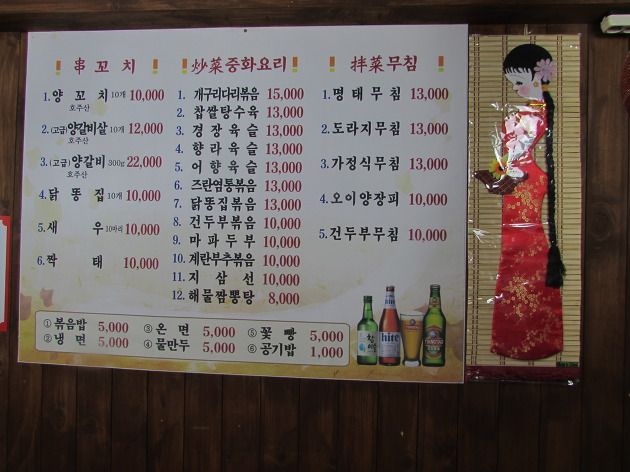 ! 串 꼬 치 !
1. 양 꼬 치 10개 10,000
호주산
2. (고급)양갈비살 10개 12,000
호주산
3. (고급)양갈비 300g 22,000
호주산
4. 닭 똥 집 10개 10,000
5. 새 우 10마리 10,000
6. 짝 태 10,000
! 炒菜중화요리 !
1. 개구리다리볶음 15,000
2. 찹쌀탕수육 13,000
3. 경장육슬 13,000
4. 향라육슬 13,000
5. 어향육슬 13,000
6. 즈란염통볶음 13,000
7. 닭똥집볶음 13,000
8. 건두부볶음 10,000
9. 마파두부 10,000
10. 계란부추볶음 10,000
11. 지삼선 10,000
12. 해물짬뽕탕 8,000
! 拌菜무침 !
1. 명태무침 13,000
2. 도라지무침 13,000
3. 가정식무침 13,000
4. 오이양장피 10,000
5. 건두부무침 10,000
① 볶음밥 5,000 ③ 온 면 5,000 ⑤ 꽃 빵 5,000
② 냉 면 5,000 ④ 물만두 5,000 ⑥ 공기밥 1,000
hite